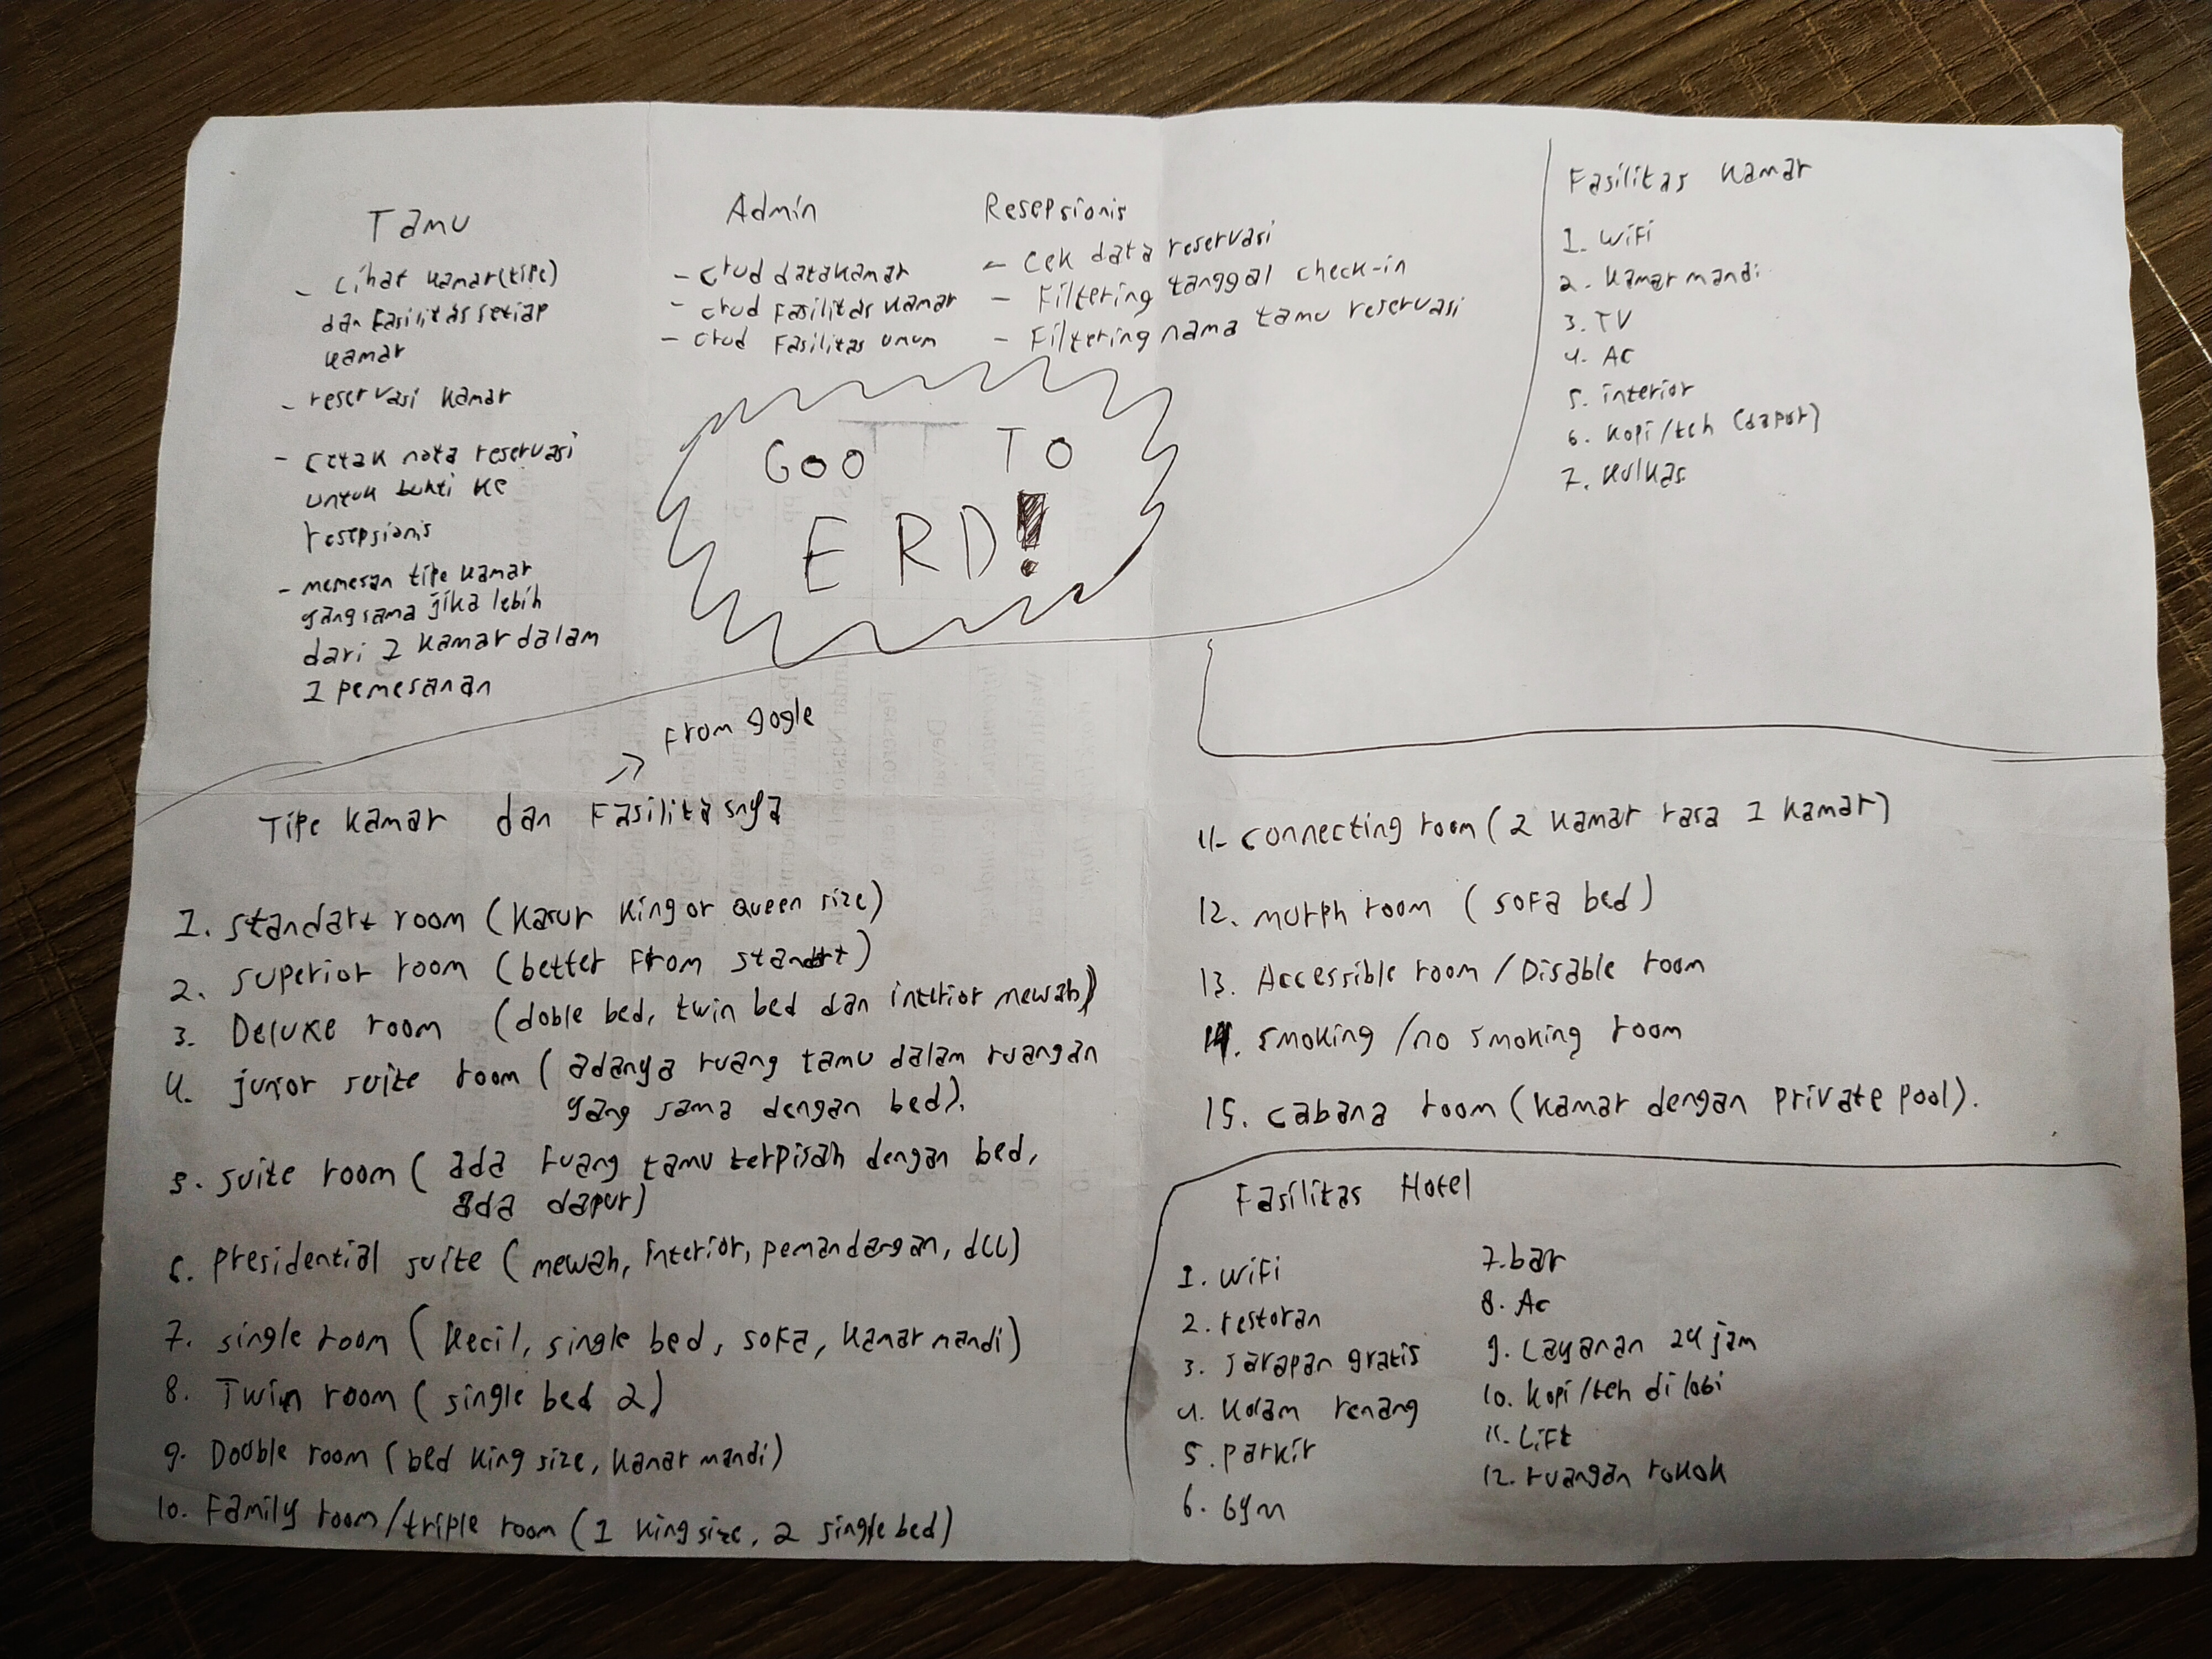 Tamu
- Lihat kamar(tipe)
dan Fasilitas setiap
kamar
- reservasi kamar
- cetak nota reservasi
untuk bukti ke
resepsionis
- memesan tipe kamar
yang sama jika lebih
dari 1 kamar dalam
1 pemesanan
Admin
- crud datakamar
- crud Fasilitas kamar
- crud Fasilitas umum
Resepsionis
- Cek data reservasi
- Filtering tanggal check-in
- Filtering nama tamu reservasi
GOO TO
ERD!
Fasilitas kamar
1. WiFi
2. kamar mandi
3. TV
4. AC
5. interior
6. kopi/teh (dapur)
7. kulkas
From gogle
Tipe kamar dan Fasilitasnya
1. standart room (kasur king or queen size)
2. superior room (better From standart)
3. Deluxe room (doble bed, twin bed dan interior mewah)
4. junior suite room (adanya ruang tamu dalam ruangan
yang sama dengan bed).
5. suite room (ada ruang tamu terpisah dengan bed,
ada dapur)
6. presidential suite (mewah, interior, pemandangan, dll)
7. single room (kecil, single bed, sofa, kamar mandi)
8. Twin room (single bed 2)
9. Double room (bed king size, kamar mandi)
10. Family room/triple room (1 king size, 2 single bed)
11. connecting room (2 kamar rasa 1 kamar)
12. murph room (sofa bed)
13. Accessible room / Disable room
14. smoking / no smoking room
15. cabana room (kamar dengan private pool).
Fasilitas Hotel
1. WiFi
2. restoran
3. sarapan gratis
4. kolam renang
5. parkir
6. Gym
7. bar
8. Ac
9. Layanan 24 jam
10. kopi/teh di lobi
11. Lift
12. ruangan rokok